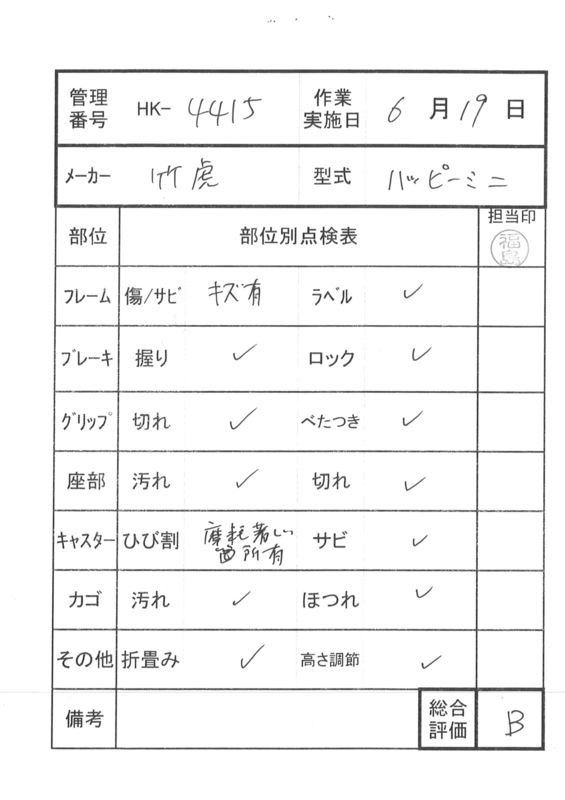 管理番号 HK- 4415 作業実施日 6月19日
メーカー 竹虎 型式 ハッピーミニ
部位 部位別点検表 担当印 福島
フレーム 傷/サビ キズ有 ラベル ✓
ブレーキ 握り ✓ ロック ✓
グリップ 切れ ✓ べたつき ✓
座部 汚れ ✓ 切れ ✓
キャスター ひび割 摩耗著しい箇所有 サビ ✓
カゴ 汚れ ✓ ほつれ ✓
その他 折畳み ✓ 高さ調節 ✓
備考 総合評価 B